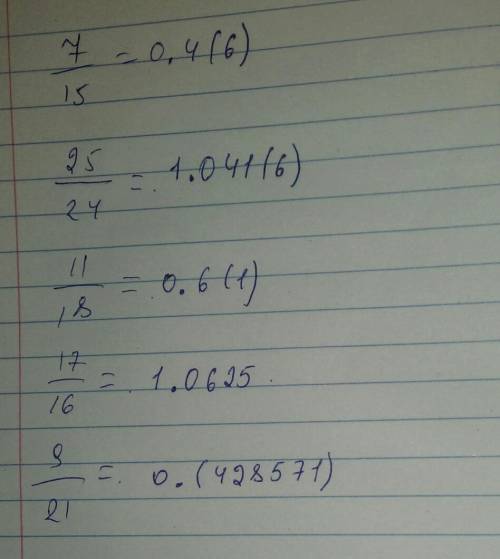 7/15 = 0.4(6)
25/24 = 1.041(6)
11/18 = 0.6(1)
17/16 = 1.0625
9/21 = 0.(428571)